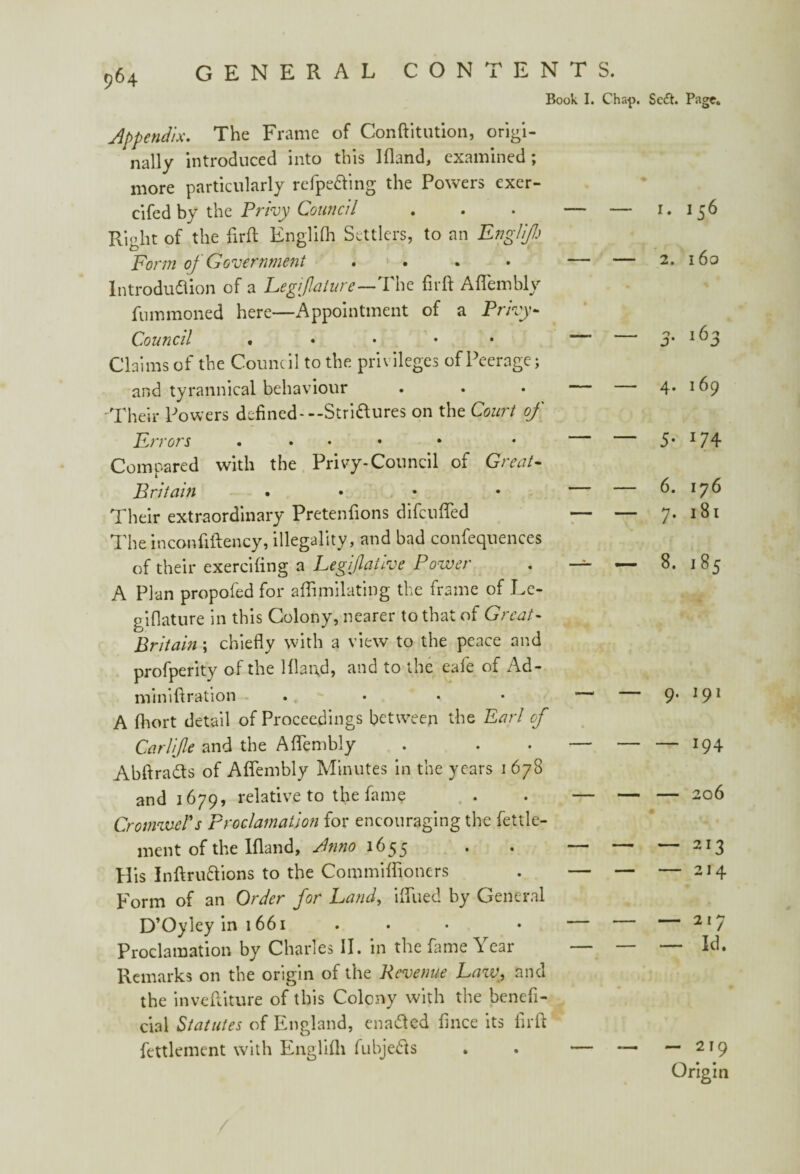 964 GENERAL CONTENTS.
Book I. Chap. Sect. Page.
Appendix. The Frame of Conſtitution, origi-
nally introduced into this Iſland, examined;
more particularly reſpecting the Powers exer-
ciſed by the Privy Council . . . — — 1. 156
Right of the firſt Engliſh Settlers, to an Engliſh
Form of Government . . . . — — 2. 160
Introduction of a Legiſlature—The firſt Aſſembly
ſummoned here—Appointment of a Privy-
Council . . . . . — — 3. 163
Claims of the Council to the privileges of Peerage;
and tyrannical behaviour . . . — — 4. 169
Their Powers defined---Strictures on the Court of
Errors . . . . . . — — 5. 174
Compared with the Privy-Council of Great-
Britain . . . . — — 6. 176
Their extraordinary Pretenſions diſcuſſed — — 7. 181
The inconſiſtency, illegality, and bad conſequences
of their exerciſing a Legiſlative Power . — — 8. 185
A Plan propoſed for aſſimilating the frame of Le-
giſlature in this Colony, nearer to that of Great-
Britain; chiefly with a view to the peace and
proſperity of the Iſland, and to the eaſe of Ad-
miniſtration . . . . — — 9. 191
A ſhort detail of Proceedings between the Earl of
Carliſle and the Aſſembly . . . — — — 194
Abſtracts of Aſſembly Minutes in the years 1678
and 1679, relative to the ſame . . — — — 206
Cromwel's Proclamation for encouraging the ſettle-
ment of the Iſland, Anno 1655 . . — — — 213
His Inſtructions to the Commiſſioners . — — — 214
Form of an Order for Land, iſſued by General
D'Oyley in 1661 . . . . — — — 217
Proclamation by Charles II. in the ſame Year — — — Id.
Remarks on the origin of the Revenue Law, and
the inveſtiture of this Colony with the benefi-
cial Statutes of England, enacted ſince its firſt
ſettlement with Engliſh ſubjects . . — — — 219
Origin